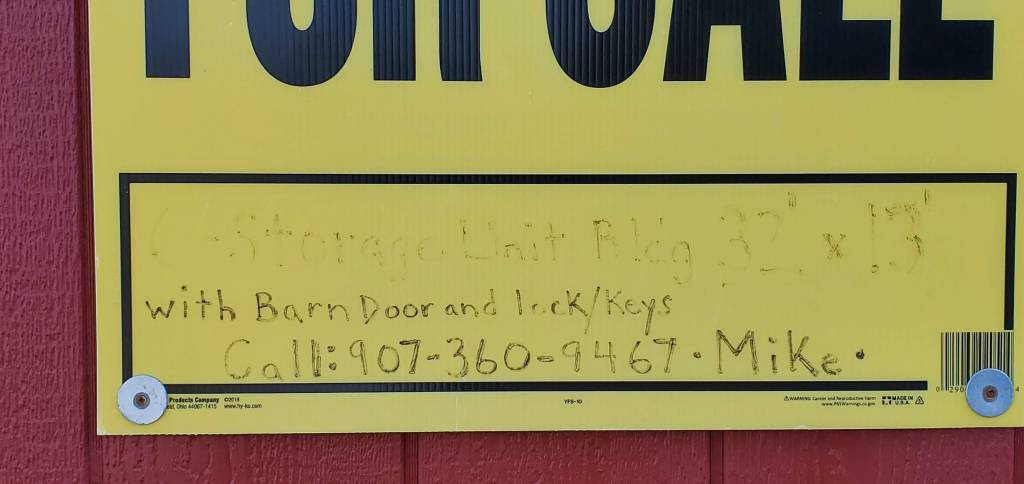 FOR SALE
Storage Unit Bldg 32" x 13"
with Barn Door and lock/Keys
Call: 907-360-9467 • Mike •
Products Company ©2018
ld, Ohio 44067-1415 www.hy-ko.com
YFS-10
⚠WARNING: Cancer and Reproductive Harm
www.P65Warnings.ca.gov
MADE IN
U.S.A.
0 290 4